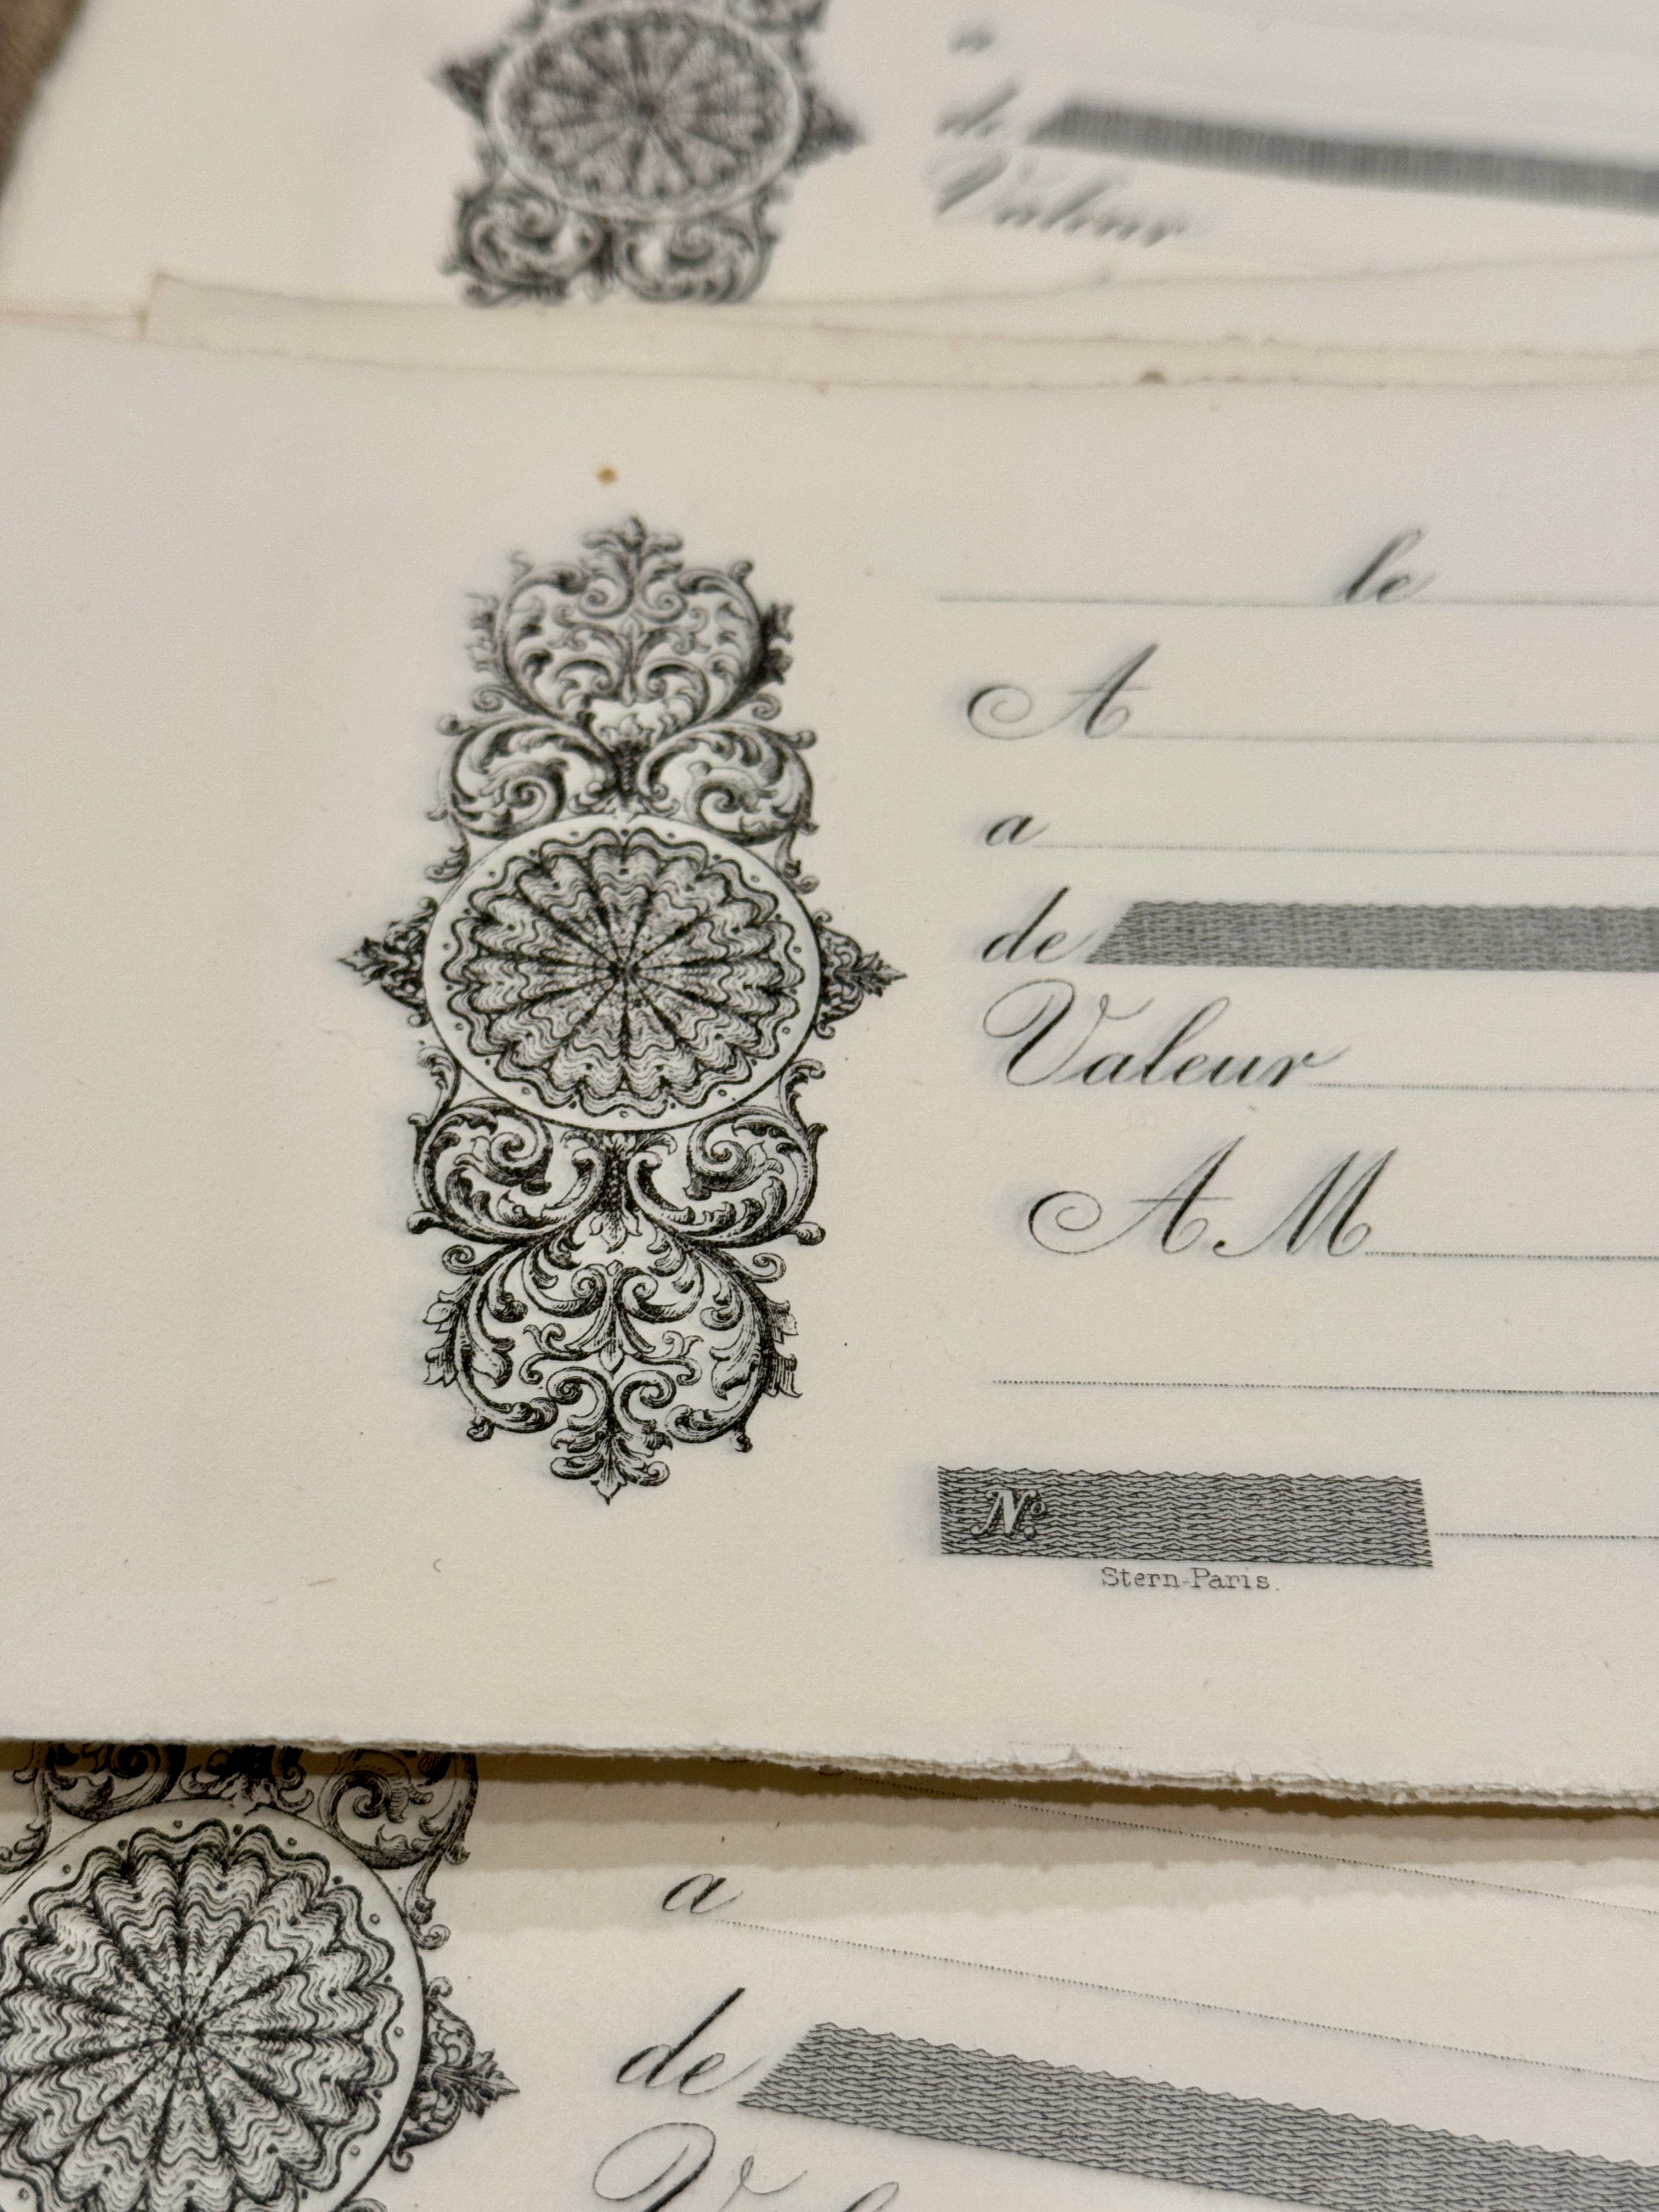 a
de
Valeur
le
A
a
de
Valeur
A M
Nº
Stern-Paris.
a
de